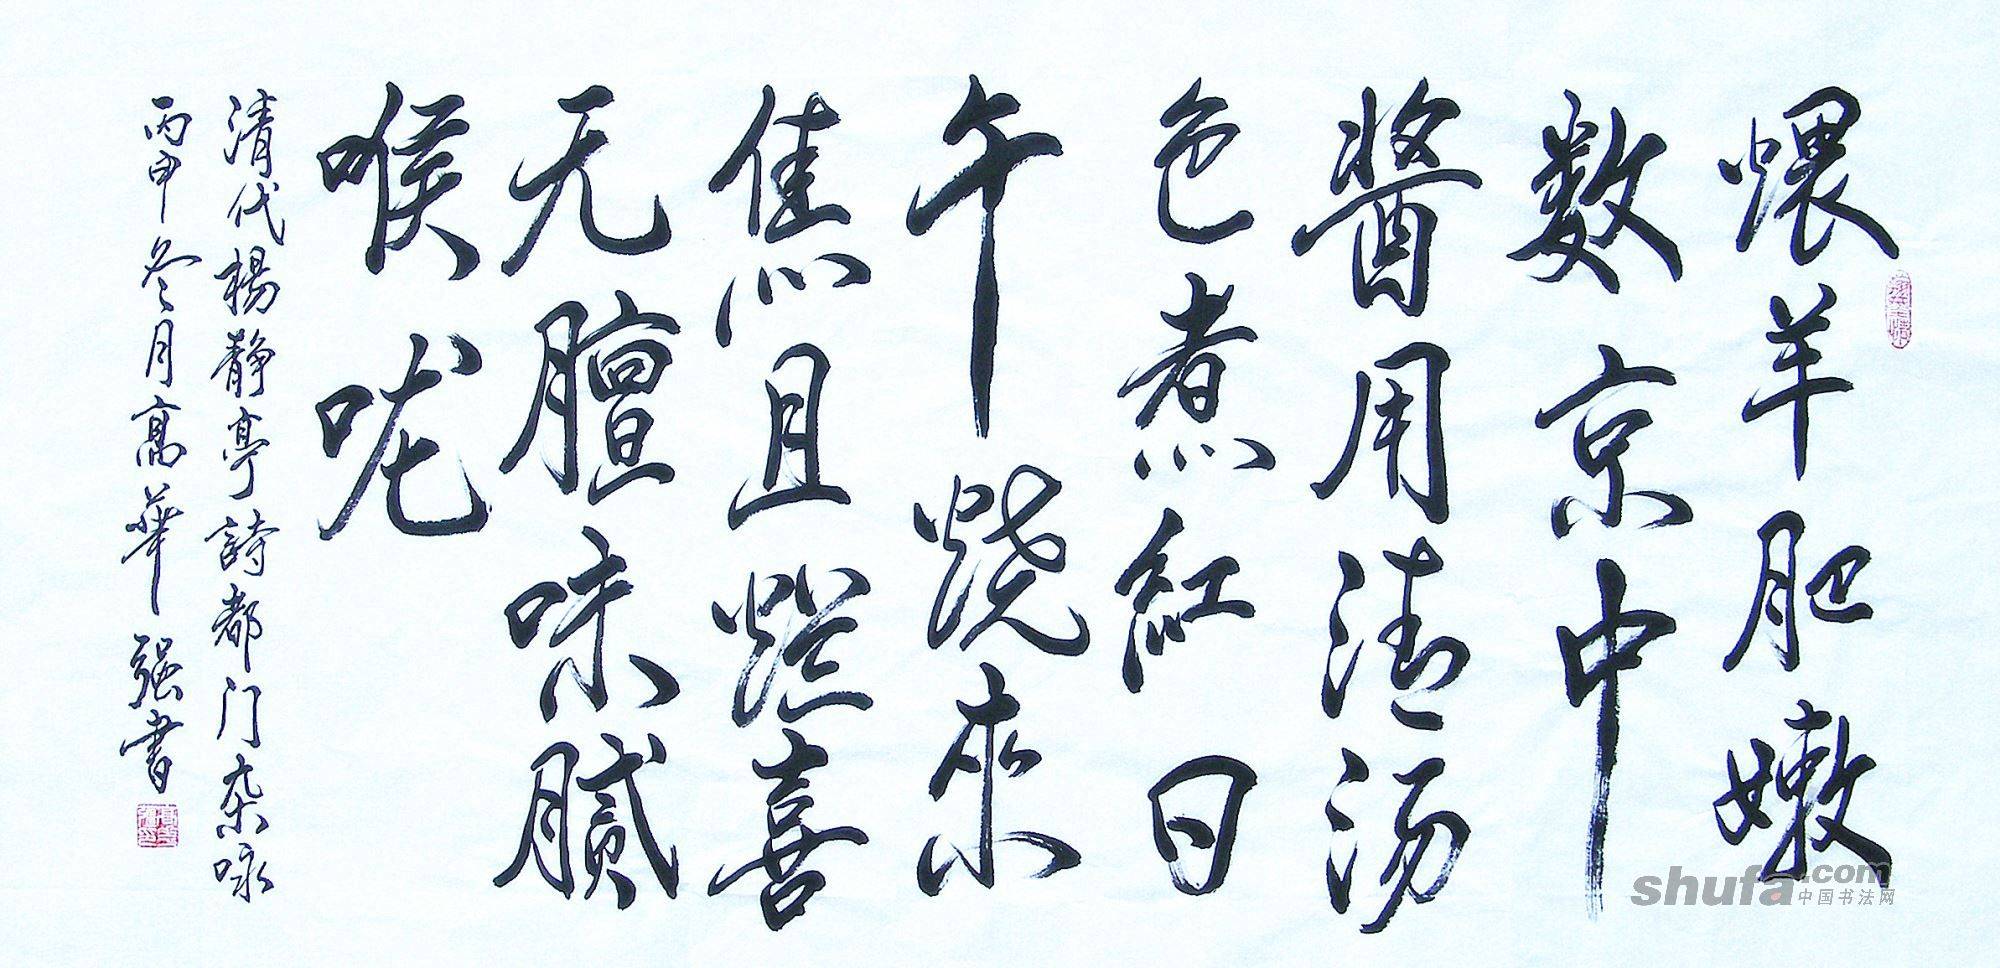 煨羊肥嫩
数京中
醬用清汤
色煮红日
午烧來
焦且烂喜
无膻味腻
喉咙
清代楊静亭詩都门杂咏
丙申冬月高華强書
shufa.com
中国书法网